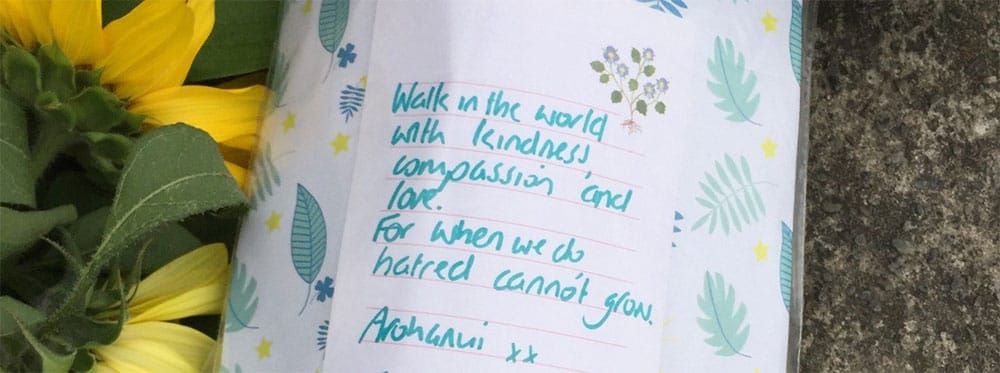 Walk in the world
with kindness
compassion and
love.
For when we do
hatred cannot grow.
Arohanui xx